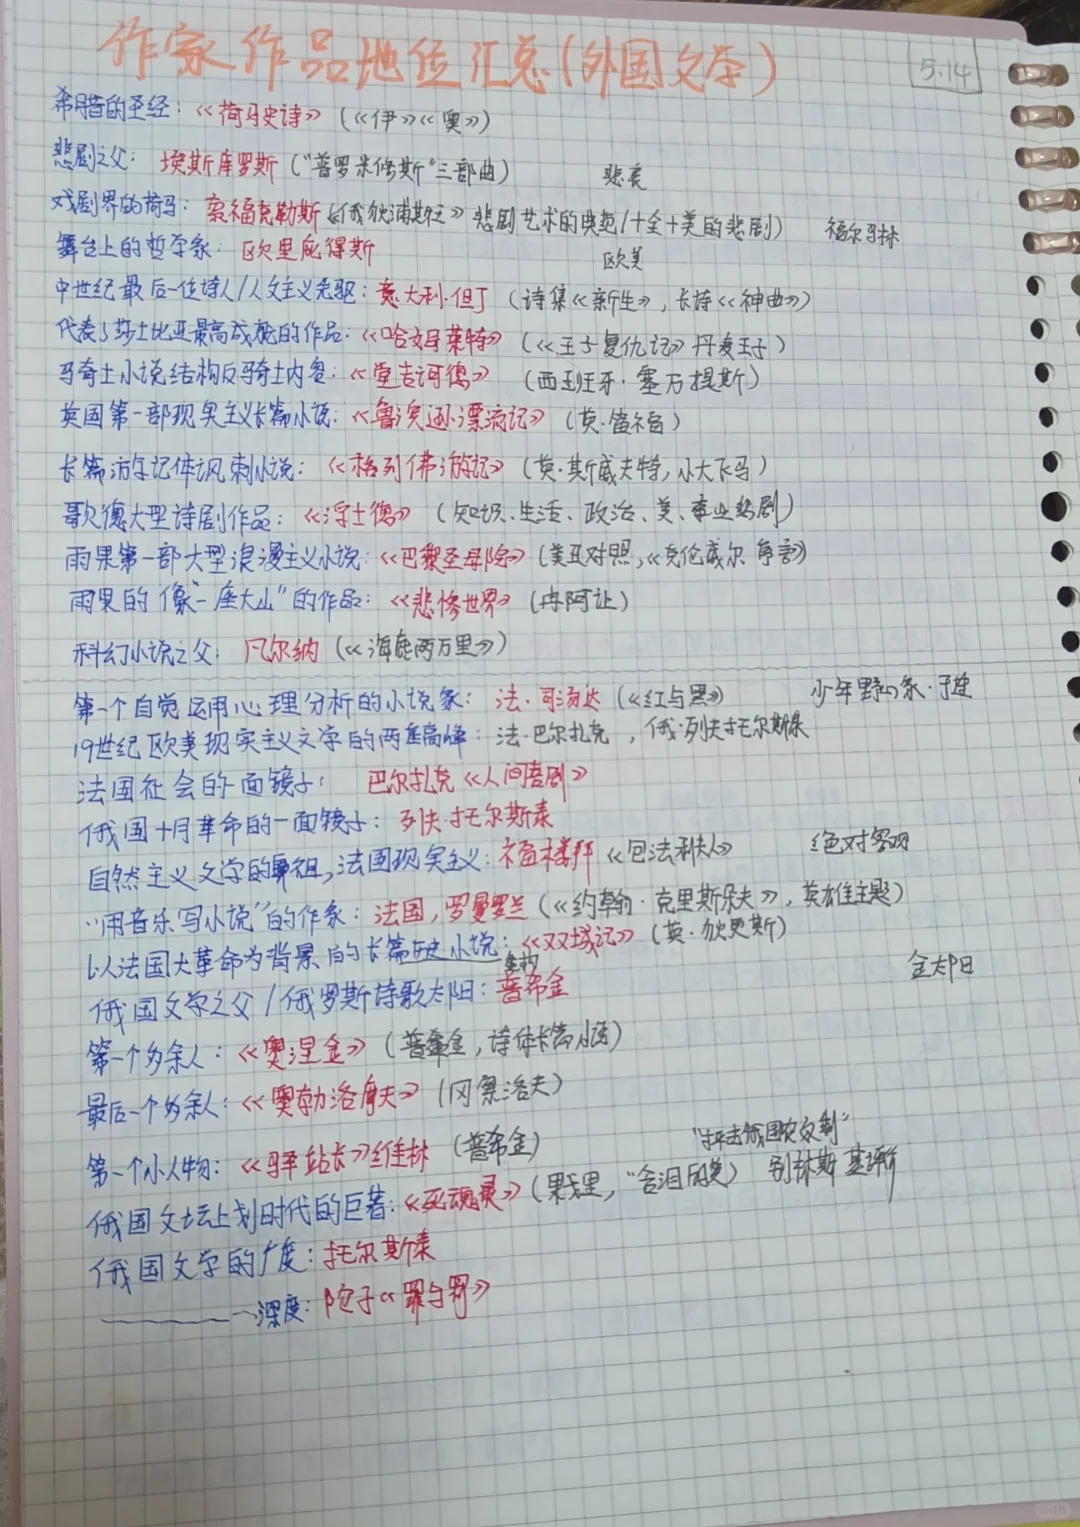 作家作品地位汇总(外国文学) 5.14
希腊的圣经:《荷马史诗》(《伊》《奥》)
悲剧之父: 埃斯库罗斯("普罗米修斯"三部曲) 悲哀
戏剧界的荷马: 索福克勒斯《俄狄浦斯王》悲剧艺术的典范/十全十美的悲剧) 福尔马林
舞台上的哲学家: 欧里庇得斯 欧美
中世纪最后一位诗人/人文主义先驱:意大利·但丁(诗集《新生》,长诗《神曲》)
代表了莎士比亚最高成就的作品:《哈姆莱特》(《王子复仇记》丹麦王子)
骑士小说结构反骑士内容:《堂吉诃德》(西班牙·塞万提斯)
英国第一部现实主义长篇小说:《鲁滨逊漂流记》(英·笛福)
长篇游记体讽刺小说:《格列佛游记》(英·斯威夫特,小大飞马)
歌德大型诗剧作品:《浮士德》(知识、生活、政治、美、事业悲剧)
雨果第一部大型浪漫主义小说:《巴黎圣母院》(美丑对照,《克伦威尔 序言》
雨果的"像一座大山"的作品:《悲惨世界》(冉阿让)
科幻小说之父: 凡尔纳(《海底两万里》)
第一个自觉运用心理分析的小说家: 法·司汤达(《红与黑》 少年野心家·于连
19世纪欧美现实主义文学的两座高峰: 法·巴尔扎克,俄·列夫托尔斯泰
法国社会的一面镜子: 巴尔扎克《人间喜剧》
俄国十月革命的一面镜子: 列夫·托尔斯泰
自然主义文学的鼻祖,法国现实主义:福楼拜《包法利夫人》 绝对客观
"用音乐写小说"的作家: 法国,罗曼罗兰(《约翰·克里斯朵夫》,英雄主题)
以法国大革命为背景的长篇历史小说:《双城记》(英·狄更斯)
虚构
俄国文学之父/俄罗斯诗歌太阳:普希金 金太阳
第一个多余人:《奥涅金》(普希金,诗体长篇小说)
最后一个多余人:《奥勃洛摩夫》(冈察洛夫)
第一个小人物:《驿站长》维林 (普希金) "抨击俄国农奴制"
俄国文坛上划时代的巨著:《死魂灵》(果戈里,"含泪的笑) 别林斯基评价
俄国文学的广度:托尔斯泰
深度:陀子《罪与罚》